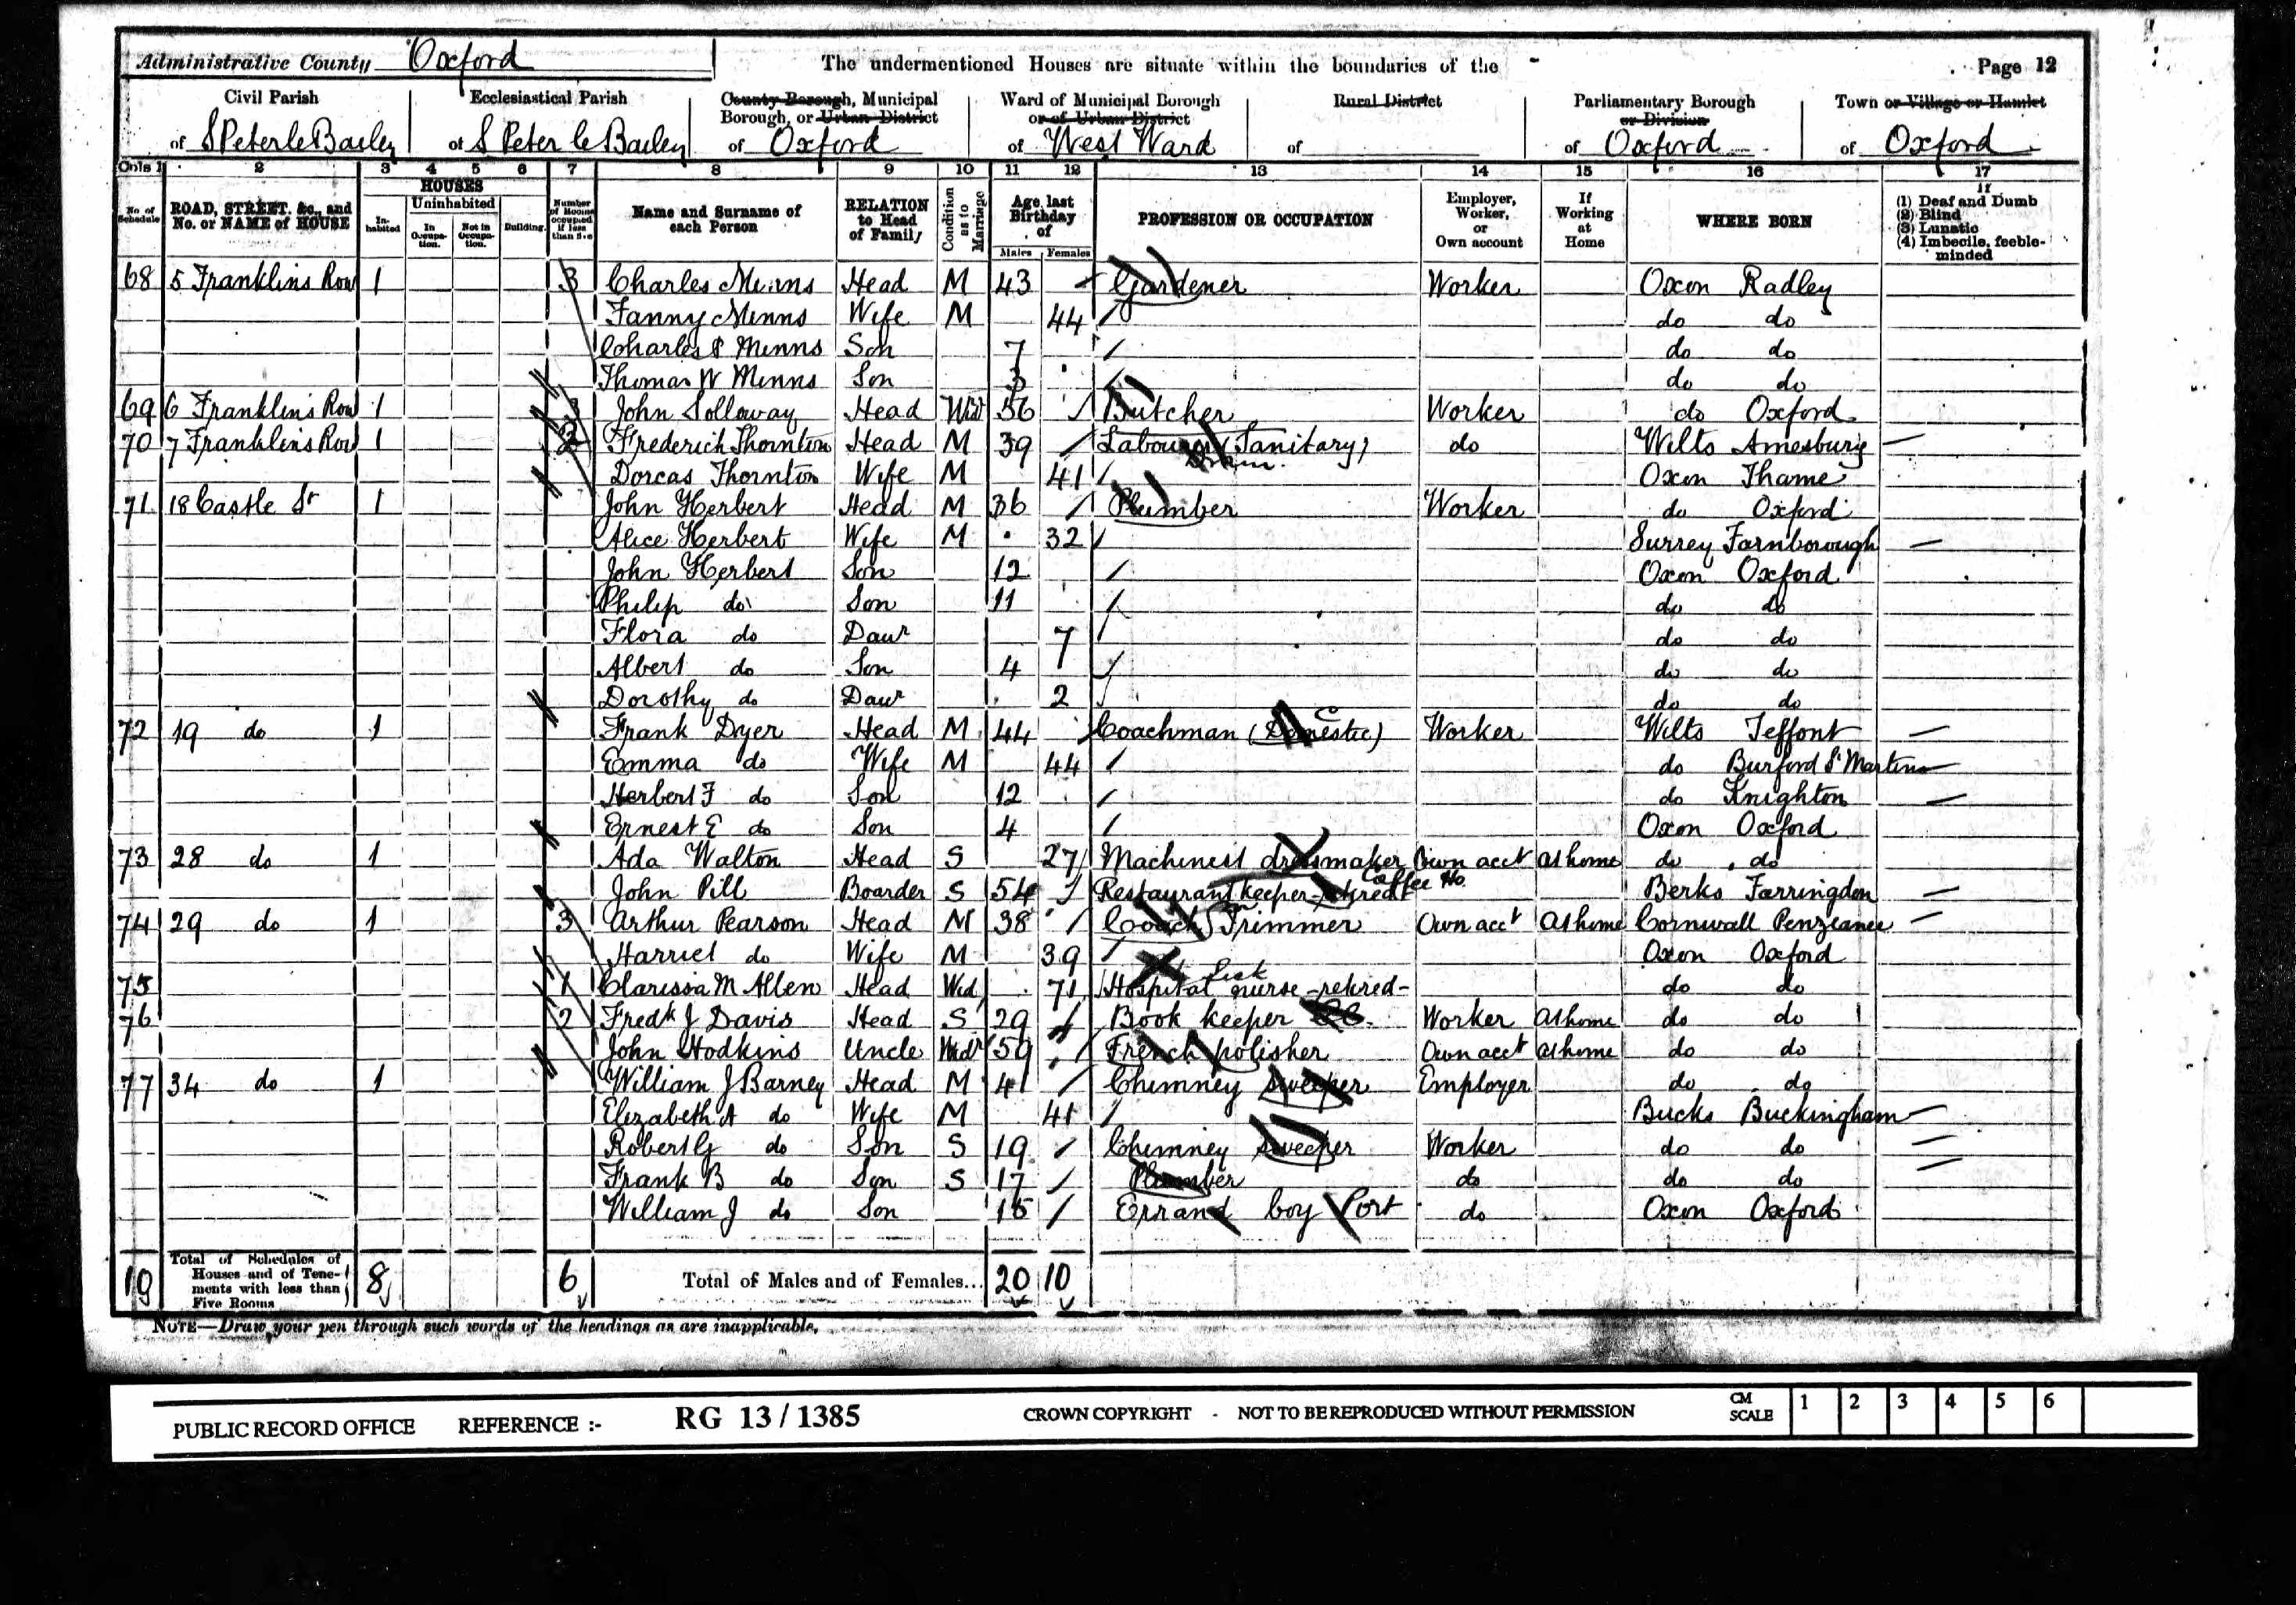 Administrative County Oxford The undermentioned Houses are situate within the boundaries of the Page 12
Civil Parish Ecclesiastical Parish County Borough, Municipal Borough, or Urban District Ward of Municipal Borough or of Urban District Rural District Parliamentary Borough or Division Town or Village or Hamlet
of S Peter le Bailey of S Peter le Bailey of Oxford of West Ward of of Oxford of Oxford
Cols 1 2 3 4 5 6 7 8 9 10 11 12 13 14 15 16 17
No. of Schedule ROAD, STREET, &c., and No. or NAME of HOUSE HOUSES In-habited Uninhabited In Occupa-tion. Not in Occupa-tion. Building. Number of Rooms occupied if less than five Name and Surname of each Person RELATION to Head of Family Condition as to Marriage Age last Birthday of Males Females PROFESSION OR OCCUPATION Employer, Worker, or Own account If Working at Home WHERE BORN If (1) Deaf and Dumb (2) Blind (3) Lunatic (4) Imbecile, feeble-minded
68 5 Franklins Row 1 3 Charles Minns Head M 43 Gardener Worker Oxon Radley
Fanny Minns Wife M 44 do do
Charles Minns Son 7 do do
Thomas W Minns Son 3 do do
69 6 Franklin's Row 1 John Solloway Head Wid 56 Butcher Worker do Oxford
70 7 Franklin's Row 1 2 Frederick Thornton Head M 39 Labourer (Sanitary) do Wilts Amesbury
Dorcas Thornton Wife M 41 Oxon Thame
71 18 Castle St 1 John Herbert Head M 36 Plumber Worker do Oxford
Alice Herbert Wife M 32 Surrey Farnborough
John Herbert Son 12 Oxon Oxford
Philip do Son 11 do do
Flora do Daur 7 do do
Albert do Son 4 do do
Dorothy do Daur 2 do do
72 19 do 1 Frank Dyer Head M 44 Coachman (Domestic) Worker Wilts Teffont
Emma do Wife M 44 do Burford St Martins
Herbert F do Son 12 do Knighton
Ernest E do Son 4 Oxon Oxford
73 28 do 1 Ada Walton Head S 27 Machinest dressmaker Own acct At home do do
John Pill Boarder S 54 Restaurant keeper - retired Coffee Ho. Berks Farringdon
74 29 do 1 3 Arthur Pearson Head M 38 Coach Trimmer Own acct At home Cornwall Penzance
Harriet do Wife M 39 Oxon Oxford
75 1 Clarissa M Allen Head Wid 71 Hospital Sick nurse - retired - do do
76 2 Fredk J Davis Head S 29 Book keeper Worker At home do do
John Hodkins Uncle Widr 59 French polisher Own acct At home do do
77 34 do 1 William J Barney Head M 41 Chimney sweeper Employer do do
Elizabeth A do Wife M 41 Bucks Buckingham
Robert G do Son S 19 Chimney sweeper Worker do do
Frank B do Son S 17 Plumber do do do
William J do Son 15 Errand boy Port do Oxon Oxford
10 Total of Schedules of Houses and of Tene-ments with less than Five Rooms 8 6 Total of Males and of Females... 20 10
NOTE—Draw your pen through such words of the headings as are inapplicable.
PUBLIC RECORD OFFICE REFERENCE :- RG 13 / 1385 CROWN COPYRIGHT - NOT TO BE REPRODUCED WITHOUT PERMISSION CM SCALE 1 2 3 4 5 6